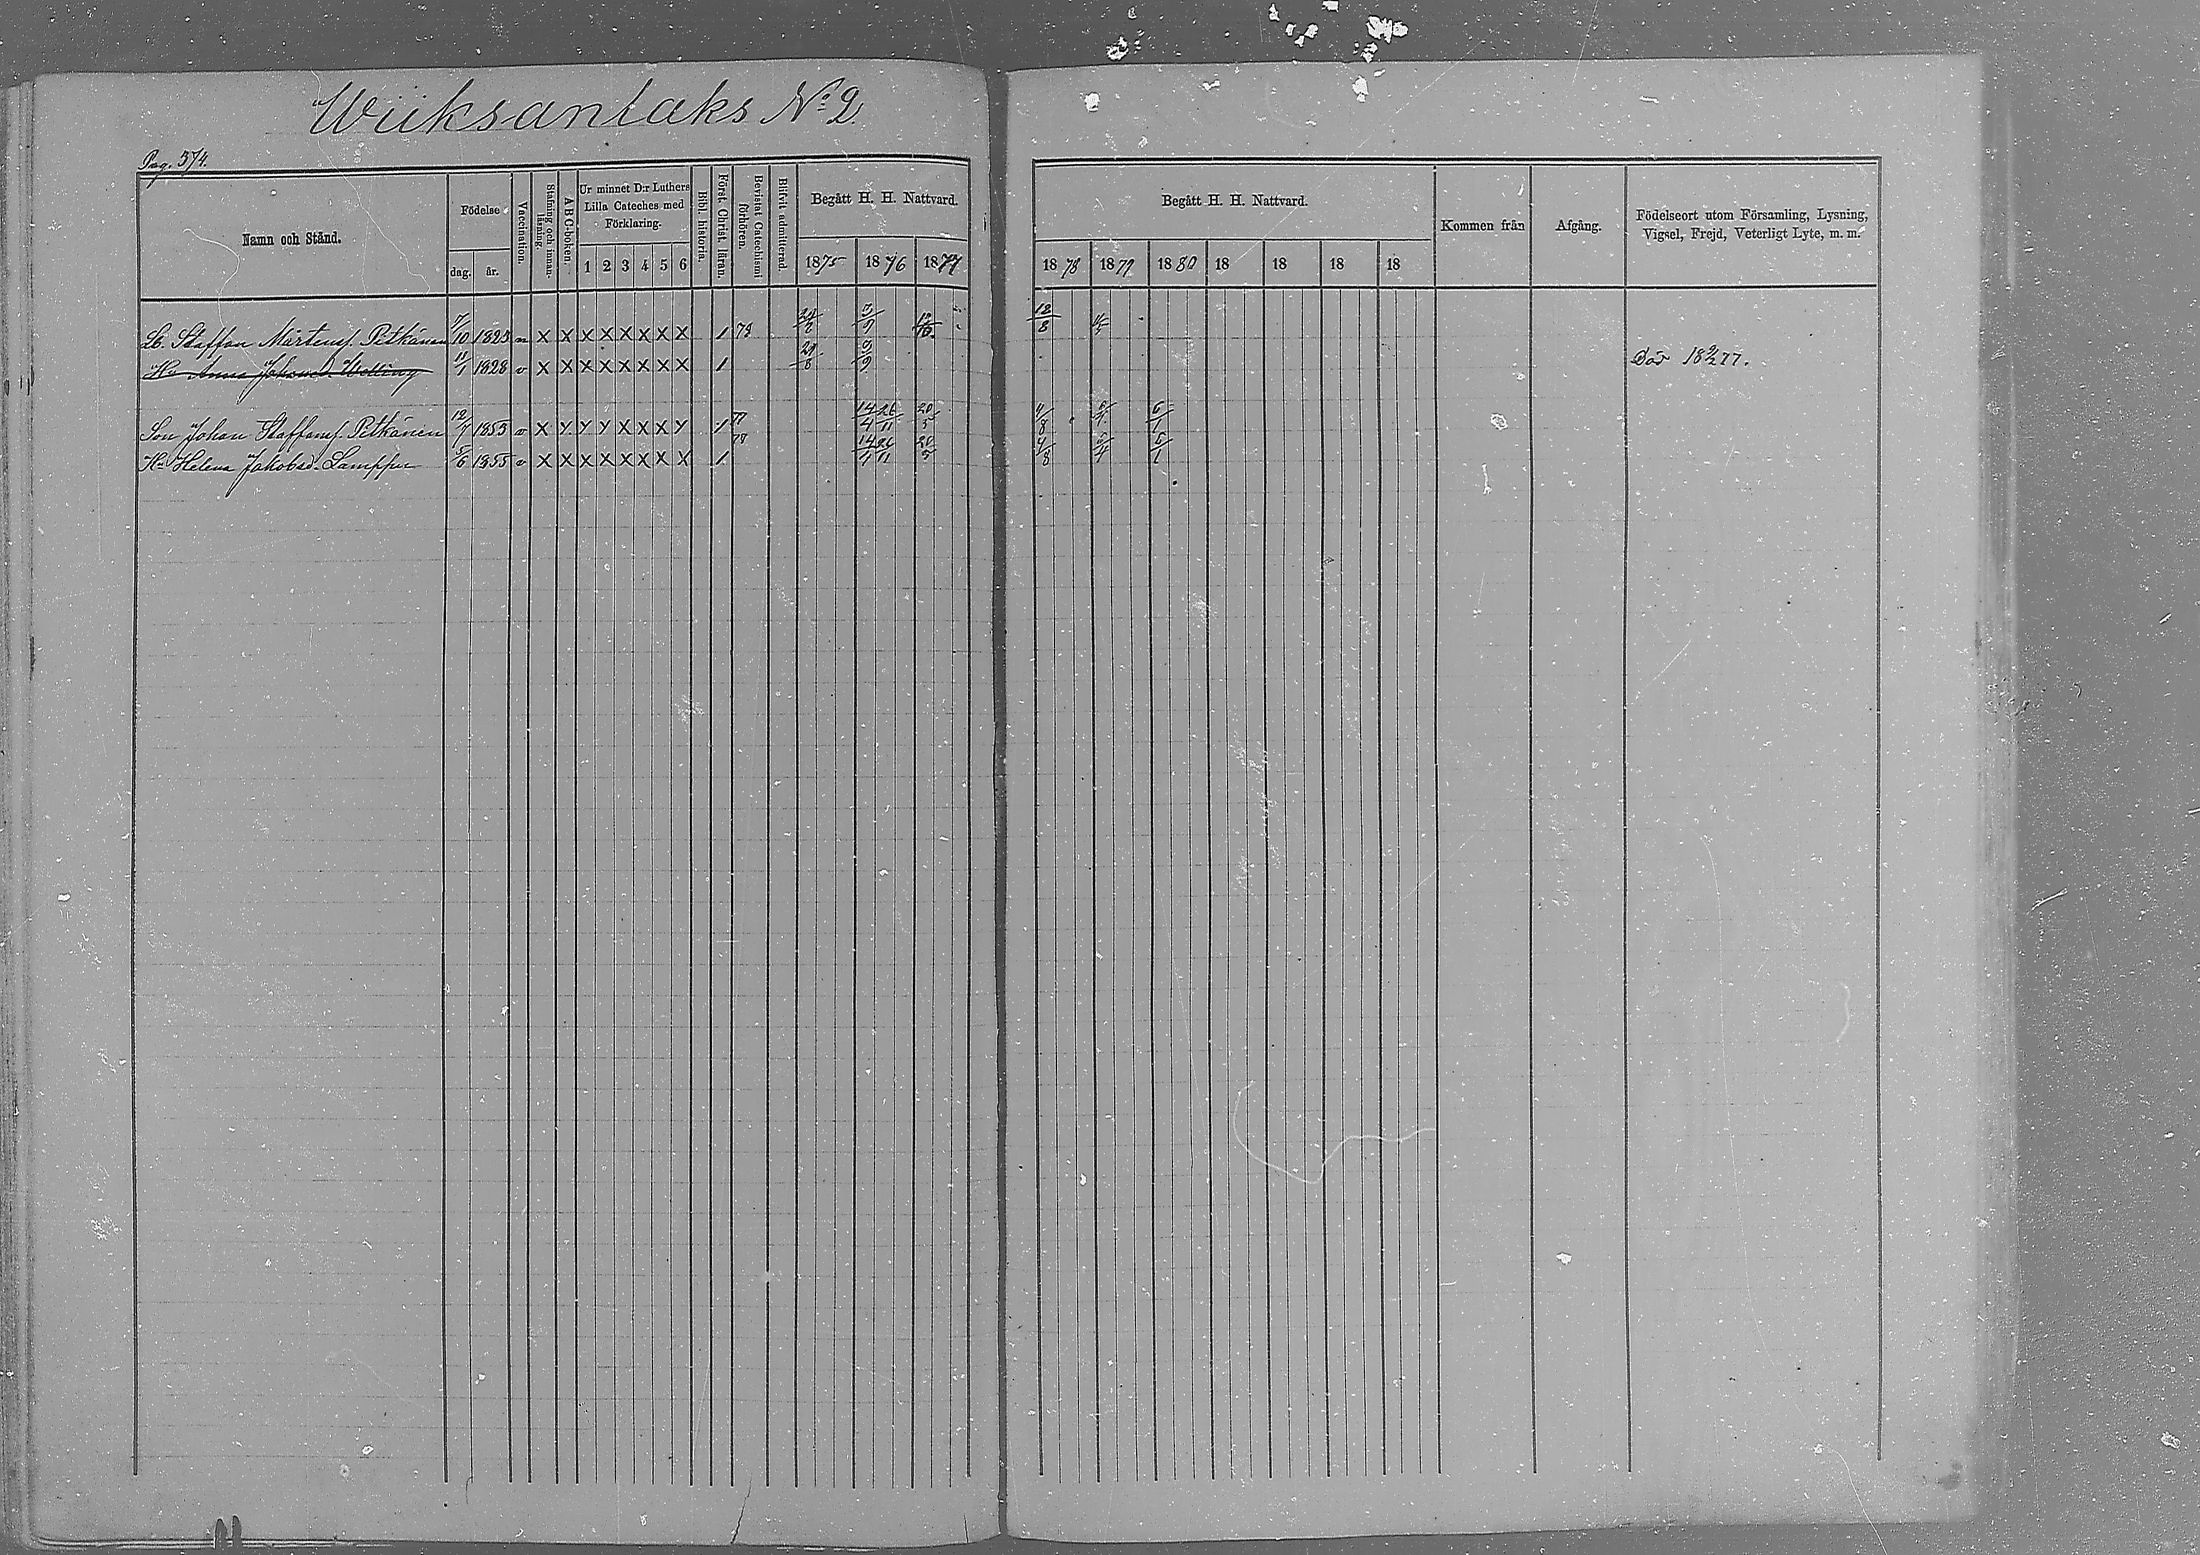 Wiiksanlaks No 2
Pag. 574.
Namn och Stånd.
Födelse
dag. år.
Vaccination.
Stafning och innan-läsning.
ABC-boken.
Ur minnet D:r Luthers Lilla Cateches med Förklaring.
1 2 3 4 5 6
Bibl. historia.
Först. Christ. läran.
Bevistat Catechismi förhören.
Blifvit admitterad.
Begått H. H. Nattvard.
1875 1876 1877
Begått H. H. Nattvard.
1878 1879 1880 18 18 18 18
Kommen från
Afgång.
Födelseort utom Församling, Lysning, Vigsel, Frejd, Veterligt Lyte, m. m.
Lb. Staffan Mårtensf. Pitkänen 7/10 1823 n X X X X X X X X 1 78 24/8 9/9 18/8
Hu Anna Johansd. Welling 11/1 1828 v X X X X X X X X 1 24/8 9/9 Död 18 9/2 77.
Son Johan Staffansf. Pitkänen 12/7 1853 v X Y Y Y X X X Y 1 77 14/4 26/11 20/5 4/8 5/4 6/1
Hu Helena Jakobsd. Lamppu 5/6 1855 v X X X X X X X X 1 78 14/4 26/11 20/5 4/8 5/4 6/1